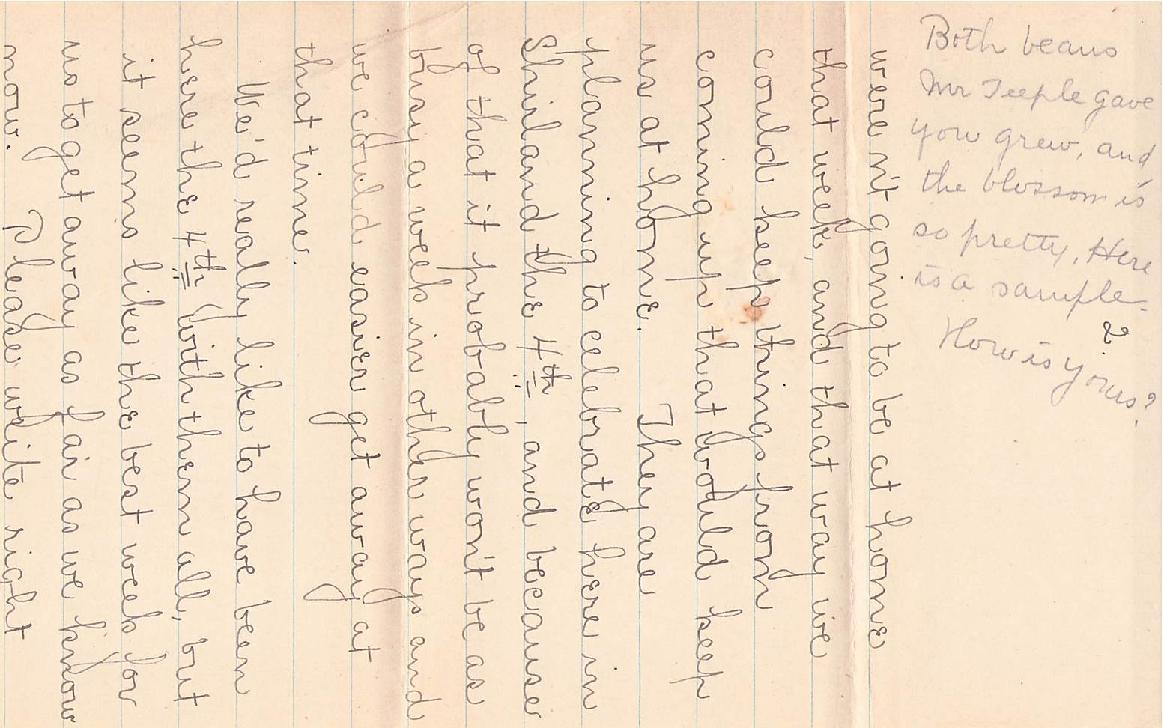 Both beans
Mr Teeple gave
you grew, and
the blossom is
so pretty. Here
is a sample.
How is yours?
2.
were n't going to be at home
that week, and that way we
could keep things from
coming up that would keep
us at home. They are
planning to celebrate here in
Shirland the 4th, and because
of that it probably won't be as
busy a week in other ways and
we could easier get away at
that time.
We'd really like to have been
here the 4th with them all, but
it seems like the best week for
us to get away as far as we know
now. Please write right